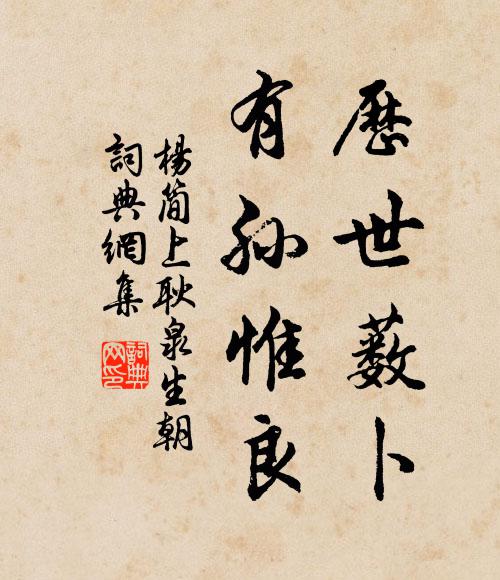 歷世藪卜
有孫惟良
楊簡上耿泉生朝
詞典網集
詞典
網印